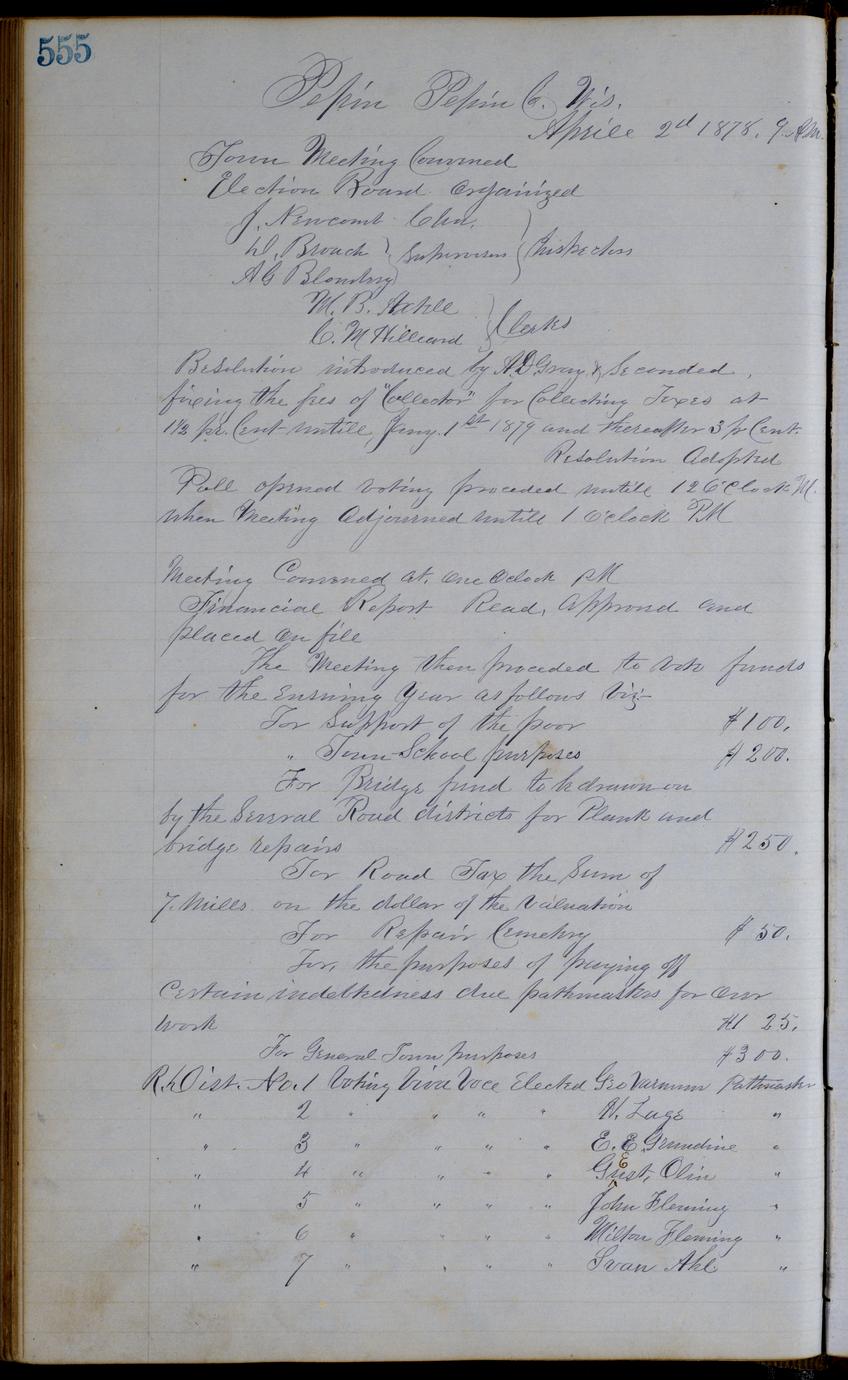 555
Pepin Pepin Co. Wis.
Aprile 2d 1878. 9 A.M.
Town Meeting Convened
Election Board Organized
J. Newcomb Chn.
D. Broach } Supervisors } Inspectors
A G
M. B. Axtell
C. M Hilliard } Clerks
Resolution introduced by A.D Gray & Seconded,
fixing the fees of "Collector" for Collecting Taxes at
1½ pr. Cent untill Jany. 1st 1879 and thereafter 3 pr Cent.
Resolution Adopted
Poll opened voting proceded untill 12 O'Clock M.
when Meeting Adjourned untill 1 O'clock PM
Meeting Convened at. one Oclock PM
Financial Report Read, Approved and
placed on file
The Meeting then proceded to vote funds
for the Ensuing Year as follows Viz-
For Support of the poor $100.
" Town School purposes $200.
For Bridge fund to be drawn on
by the Several Road districts for Plank and
bridge repairs $250.
For Road Tax the Sum of
7. Mills on the dollar of the Valuation
For Repair Cemetery $50.
For, the purposes of paying off
Certain indebtedness due pathmasters for over
work $125.
For General Town purposes $300.
Rd Dist. No. 1 Voting Viva Voce Elected Geo Varnum Pathmaster
" 2 " " " " N. Lage "
" 3 " " " " E. E. "
" 4 " " " " Gust. Olin "
" 5 " " " " John Fleming "
" 6 " " " " Milton Fleming "
" 7 " " " " Swan Ahl "